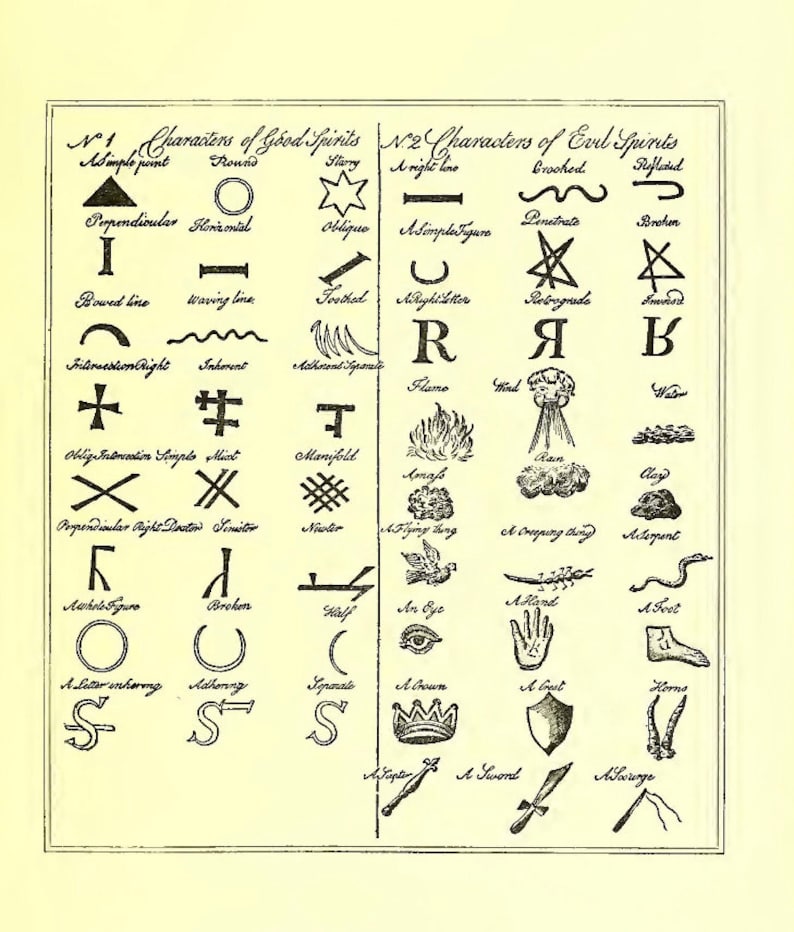 Nº 1 Characters of Good Spirits
A Simple point Round Starry
Perpendicular Horizontal Oblique
Bowed line Waving line. Toothed
Intersection Right Inherent Adherent Separate
Obliq Intersection Simple Mixt Manifold
Perpendicular Right Dexter Sinister Neuter
A whole Figure Broken Half
A Letter inhering Adhering Separate
S S S
Nº 2 Characters of Evil Spirits
A right line Crooked Reflexed
A Simple Figure Penetrate Broken
A Right Letter Retrograde Invers'd
R Я R
Flame Wind Water
A mass Rain Clay
A Flying thing A Creeping thing A Serpent
An Eye A Hand A Foot
A Crown A Crest Horns
A Scepter A Sword A Scourge